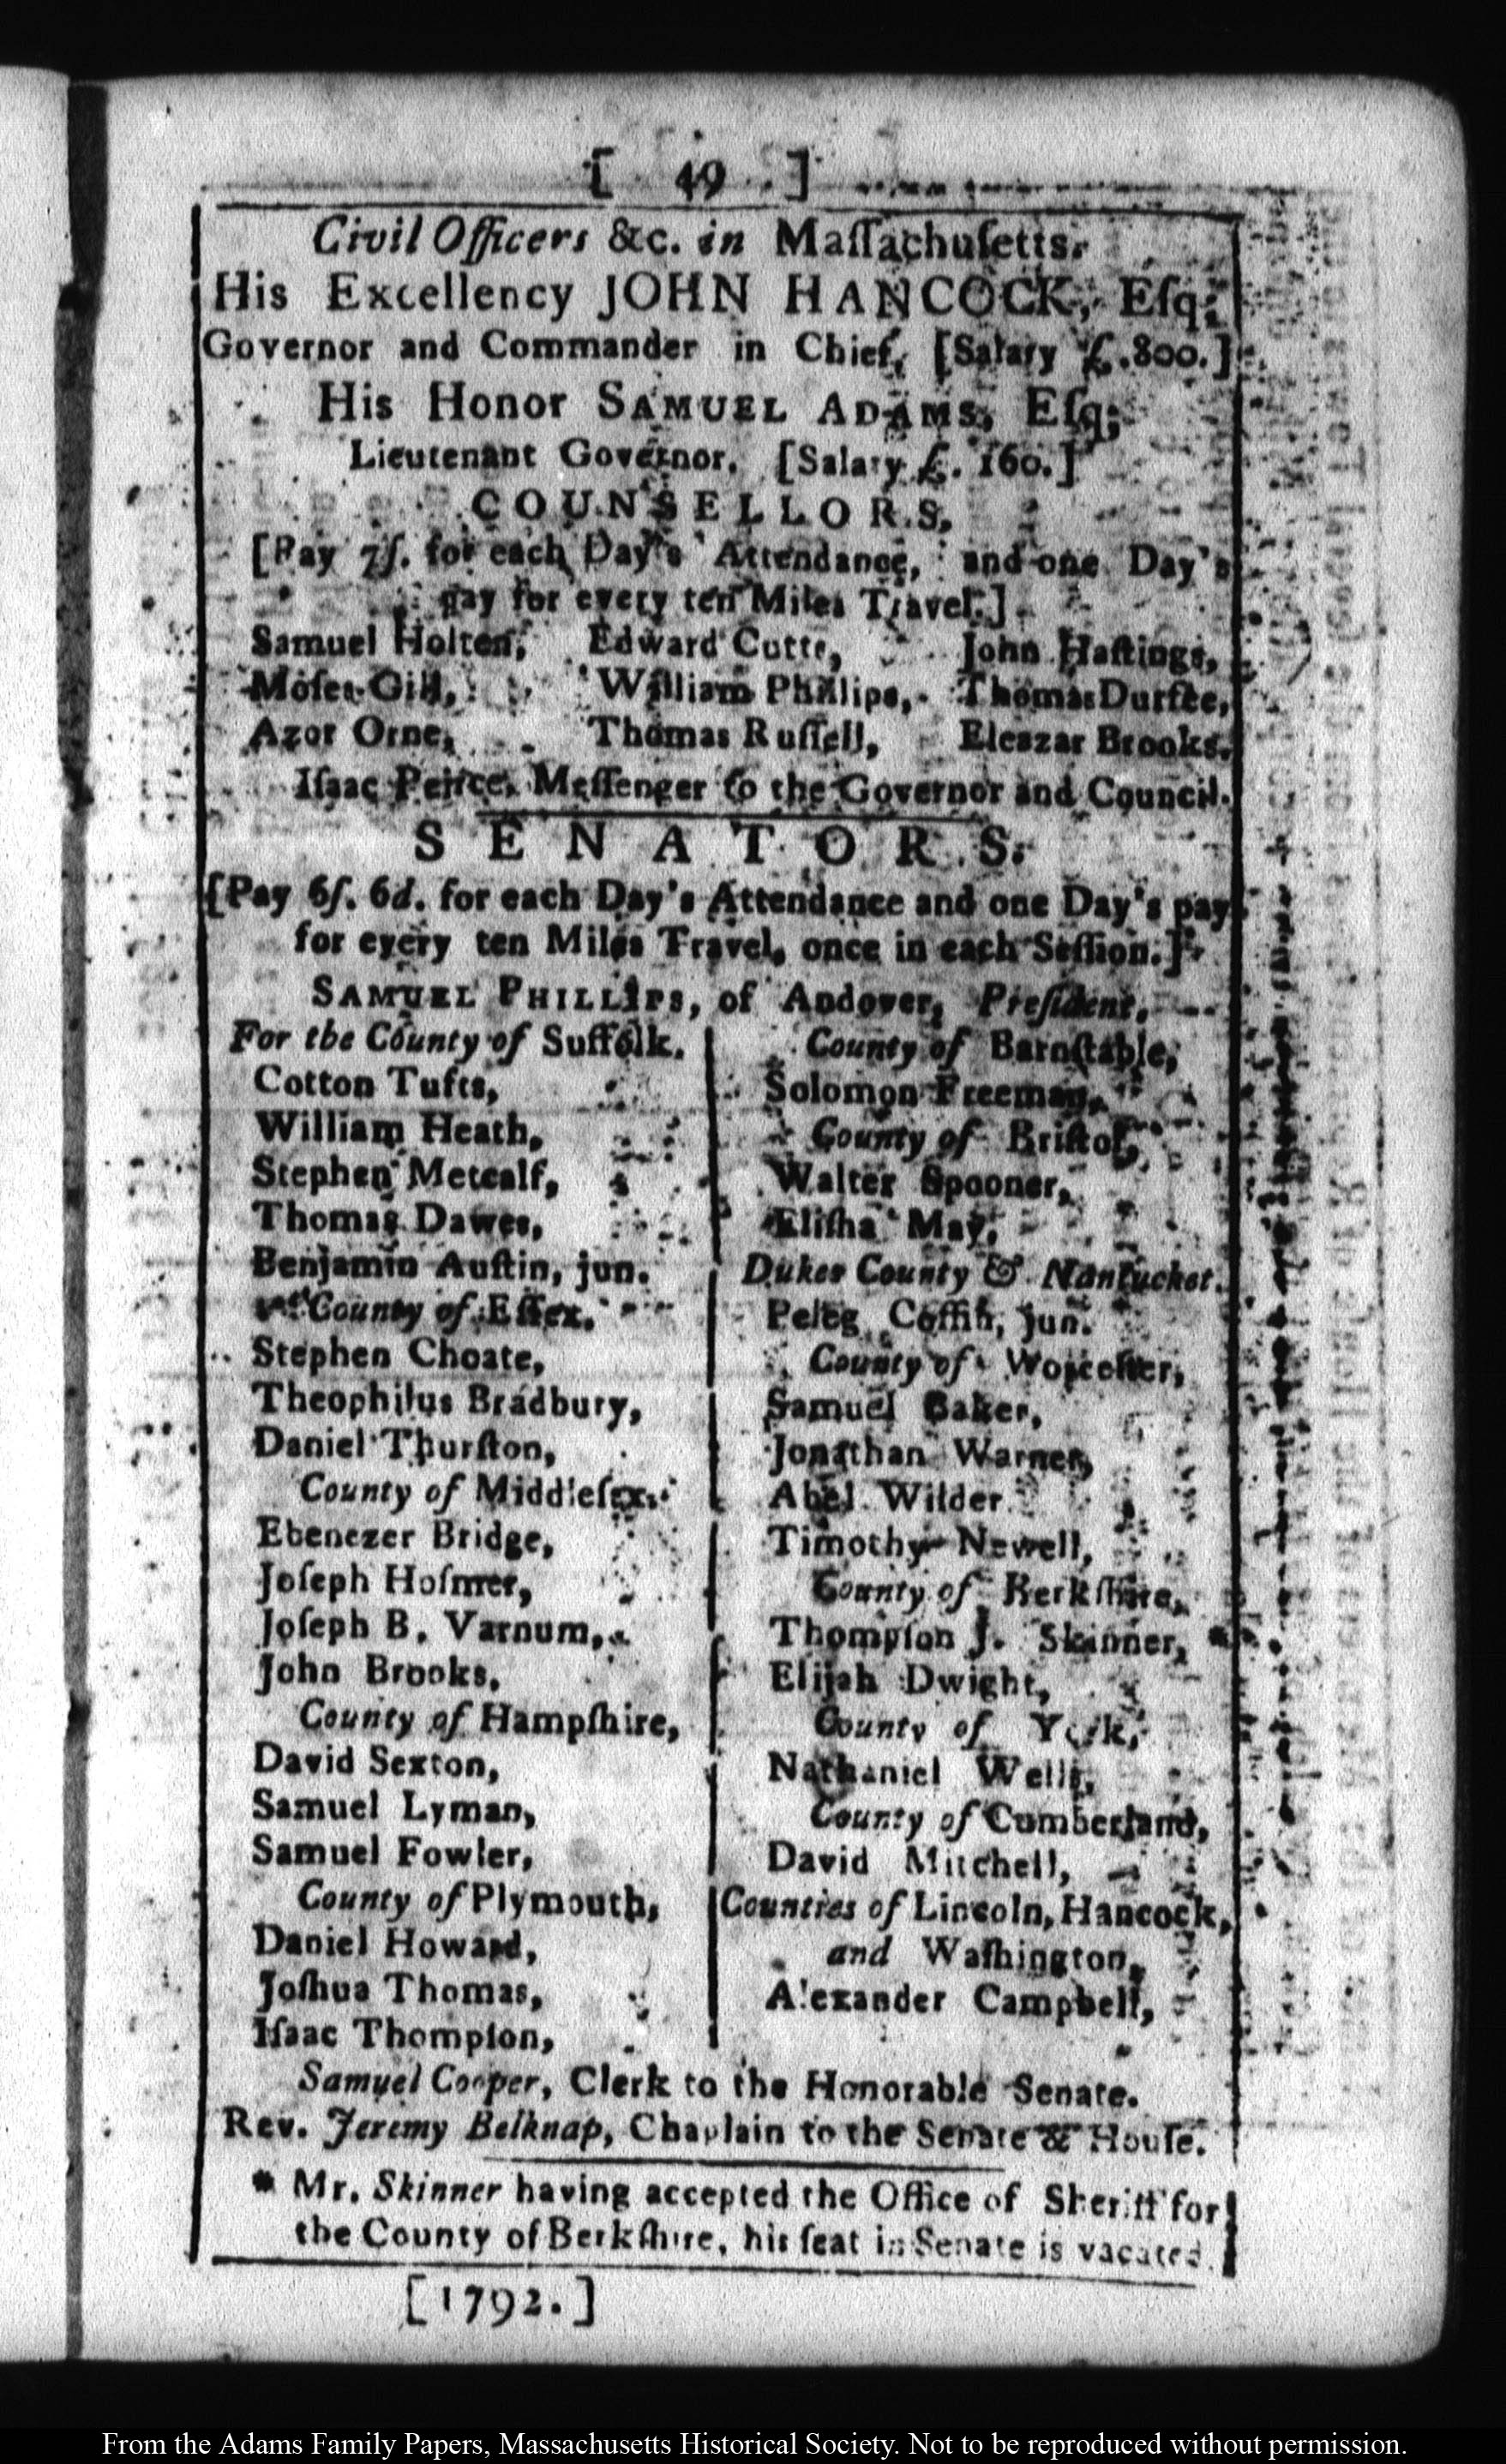 [ 49 ]
Civil Officers &c. in Maſſachuſetts.
His Excellency JOHN HANCOCK, Eſq;
Governor and Commander in Chief, [Salary £.800.]
His Honor SAMUEL ADAMS, Eſq;
Lieutenant Governor. [Salary £. 160.]
COUNSELLORS.
[Pay 7ſ. for each Day's Attendance, and one Day's
pay for every ten Miles Travel.]
Samuel Holten, Edward Cutts, John Haſtings,
Moſes Gill, William Phillips, Thomas Durfee,
Azor Orne, Thomas Ruſſell, Eleazar Brooks.
Iſaac Peirce, Meſſenger to the Governor and Council.
SENATORS.
[Pay 6ſ. 6d. for each Day's Attendance and one Day's pay
for every ten Miles Travel, once in each Seſſion.]
SAMUEL PHILLIPS, of Andover, Preſident.
For the County of Suffolk.
Cotton Tufts,
William Heath,
Stephen Metcalf,
Thomas Dawes,
Benjamin Auſtin, jun.
County of Eſſex.
Stephen Choate,
Theophilus Bradbury,
Daniel Thurſton,
County of Middleſex.
Ebenezer Bridge,
Joſeph Hoſmer,
Joſeph B. Varnum,
John Brooks,
County of Hampſhire,
David Sexton,
Samuel Lyman,
Samuel Fowler,
County of Plymouth,
Daniel Howard,
Joſhua Thomas,
Iſaac Thompſon,
County of Barnſtable,
Solomon Freeman,
County of Briſtol,
Walter Spooner,
Eliſha May,
Dukes County & Nantucket.
Peleg Coffin, jun.
County of Worceſter,
Samuel Baker,
Jonathan Warner,
Abel Wilder
Timothy Newell,
County of Berkſhire,
Thompſon J. Skinner, *
Elijah Dwight,
County of York,
Nathaniel Wells,
County of Cumberland,
David Mitchell,
Counties of Lincoln, Hancock,
and Waſhington,
Alexander Campbell,
Samuel Cooper, Clerk to the Honorable Senate.
Rev. Jeremy Belknap, Chaplain to the Senate & Houſe.
* Mr. Skinner having accepted the Office of Sheriff for
the County of Berkſhire, his ſeat in Senate is vacated.
[1792.]
From the Adams Family Papers, Massachusetts Historical Society. Not to be reproduced without permission.